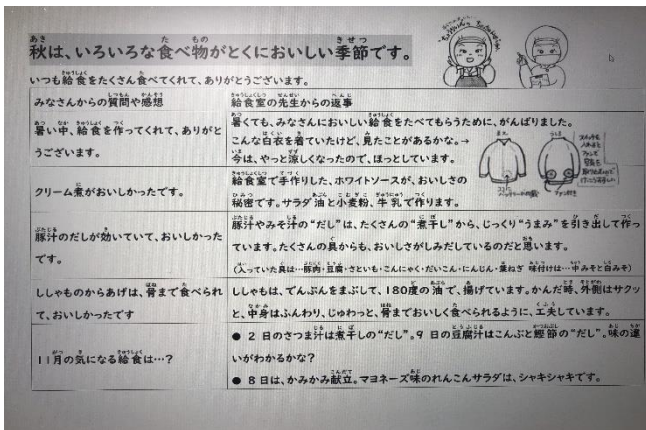 秋は、いろいろな食べ物がとくにおいしい季節です。
いつも給食をたくさん食べてくれて、ありがとうございます。
みなさんからの質問や感想
給食室の先生からの返事
暑い中、給食を作ってくれて、ありがと
うございます。
暑くても、みなさんにおいしい給食をたべてもらうために、がんばりました。
こんな白衣を着ていたけど、見たことがあるかな。→
今は、やっと涼しくなったので、ほっとしています。
まえ
うしろ
クリーム煮がおいしかったです。
給食室で手作りした、ホワイトソースが、おいしさの
秘密です。サラダ油と小麦粉、牛乳で作ります。
豚汁のだしが効いていて、おいしかった
です。
豚汁やみそ汁の“だし”は、たくさんの“煮干し”から、じっくり“うまみ”を引き出して作っ
ています。たくさんの具からも、おいしさがしみだしているのだと思います。
(入っていた具は…豚肉・豆腐・さといも・こんにゃく・だいこん・にんじん・葉ねぎ 味付けは…中みそと白みそ)
ししゃものからあげは、骨まで食べられ
て、おいしかったです
ししゃもは、でんぷんをまぶして、180度の油で、揚げています。かんだ時、外側はサクッ
と、中身はふんわり、じゅわっと、骨までおいしく食べられるように、工夫しています。
11月の気になる給食は…?
● 2日のさつま汁は煮干しの“だし”。9日の豆腐汁はこんぶと鰹節の“だし”。味の違
いがわかるかな?
● 8日は、かみかみ献立。マヨネーズ味のれんこんサラダは、シャキシャキです。